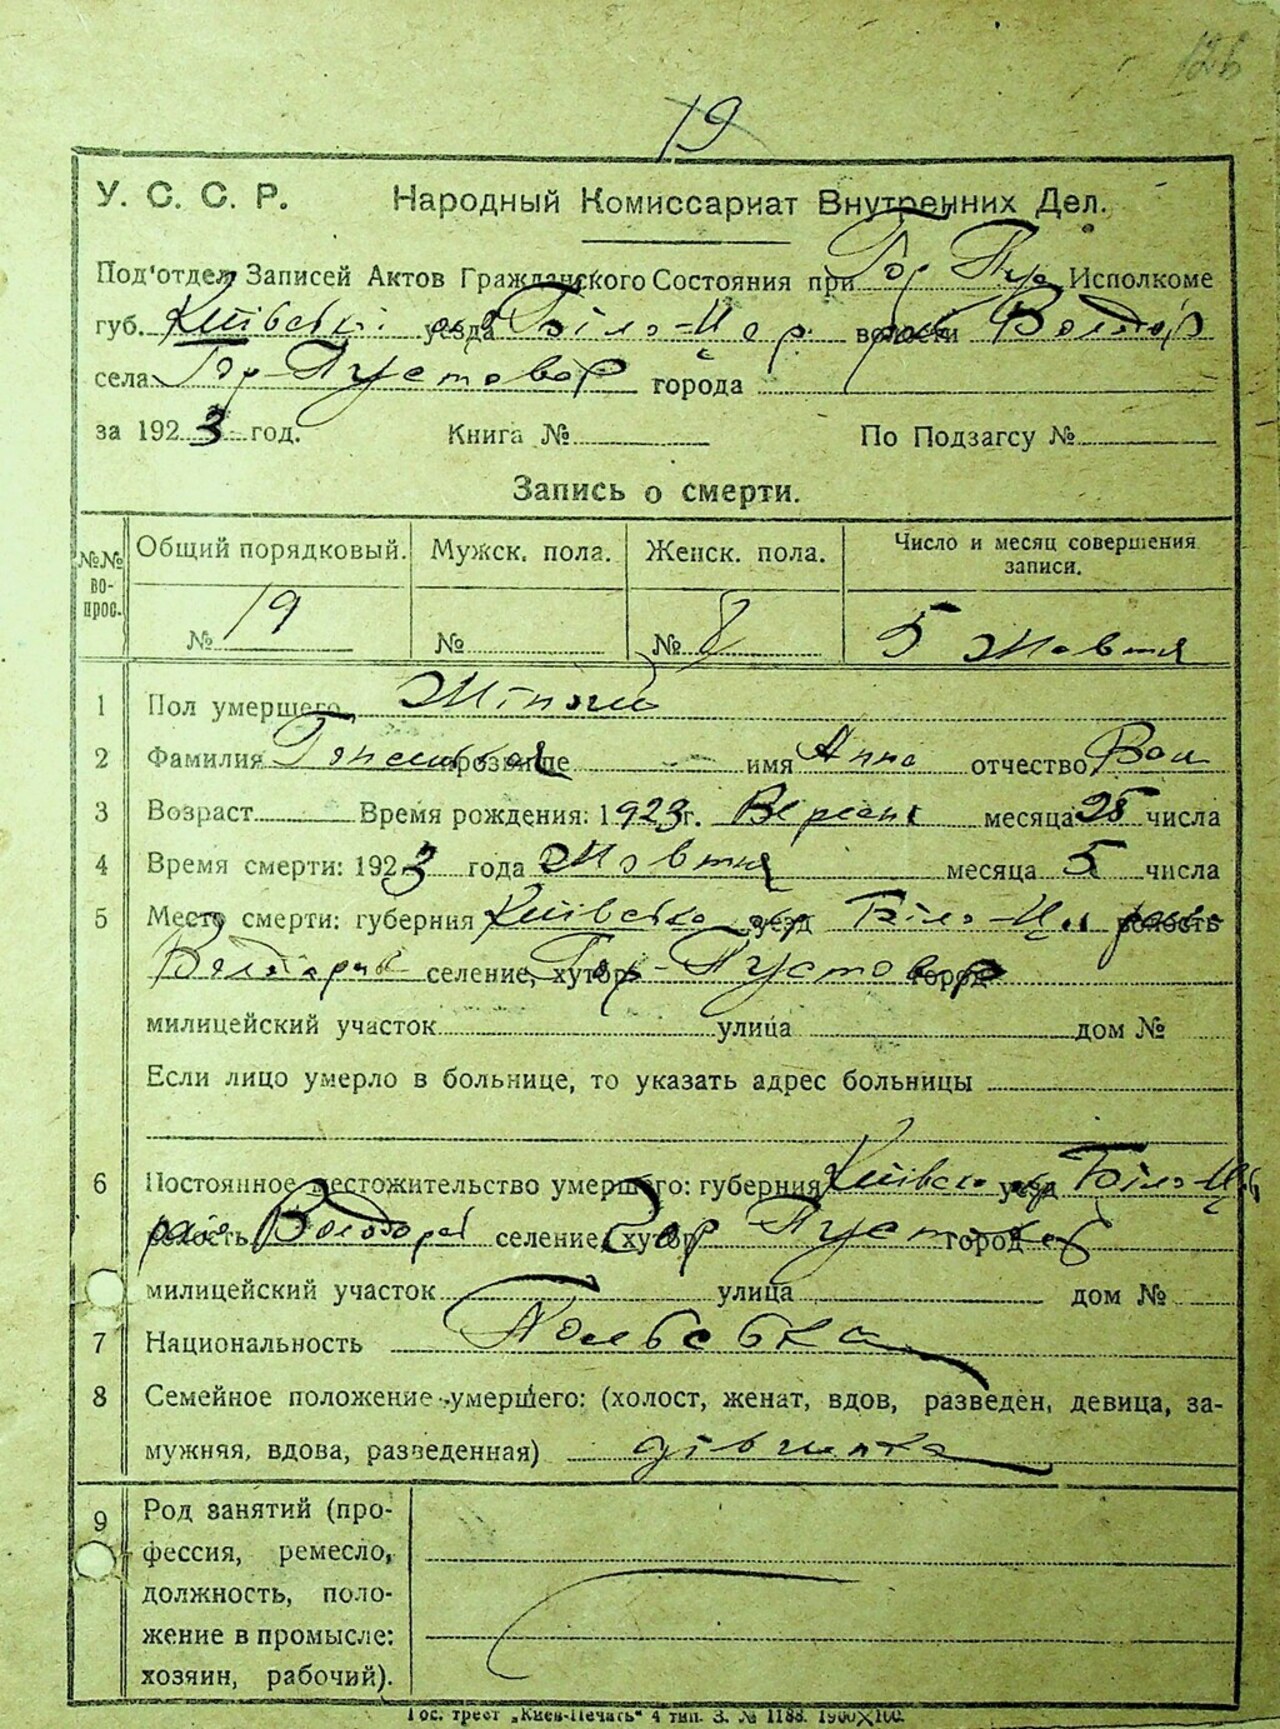 126
19
У. С. С. Р. Народный Комиссариат Внутренних Дел.
Под'отдел Записей Актов Гражданского Состояния при Гор Пус Исполкоме
губ. Київської уезда Біло-Цер волости Волод
села Гор-Пустовар города
за 1923 год. Книга № По Подзагсу №
Запись о смерти.
№№ во-прос. Общий порядковый. Мужск. пола. Женск. пола. Число и месяц совершения
записи.
№ 19 № № 8 5 Жовтня
1 Пол умершего Жіночий
2 Фамилия прозвище имя Анна отчество
3 Возраст Время рождения: 1923 г. Вересня месяца 25 числа
4 Время смерти: 1923 года Жовтня месяца 5 числа
5 Место смерти: губерния Київсько уезд Біло-Ц волость
селение, хутор Гор-Пустовар город
милицейский участок улица дом №
Если лицо умерло в больнице, то указать адрес больницы
6 Постоянное местожительство умершего: губерния Київсько уезд Біло-Ц
волость селение, хутор Гор Пустов город
милицейский участок улица дом №
7 Национальность Польська
8 Семейное положение умершего: (холост, женат, вдов, разведен, девица, за-
мужняя, вдова, разведенная) дівчинка
9 Род занятий (про-
фессия, ремесло,
должность, поло-
жение в промысле:
хозяин, рабочий).
Гос. трест „Киев-Печать" 4 тип. З. № 1188. 1900×100.